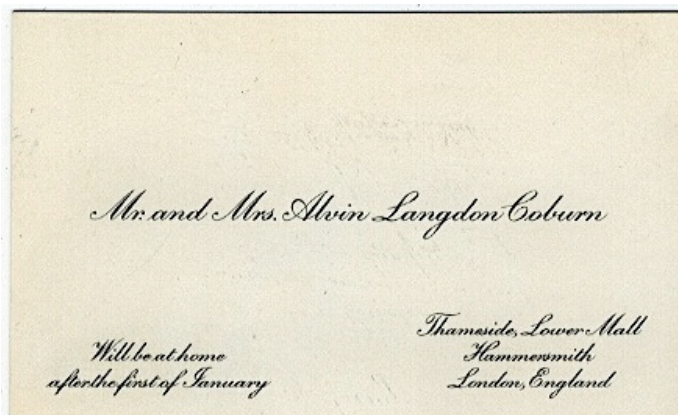 Mr. and Mrs. Alvin Langdon Coburn
Will be at home
after the first of January
Thameside, Lower Mall
Hammersmith
London, England